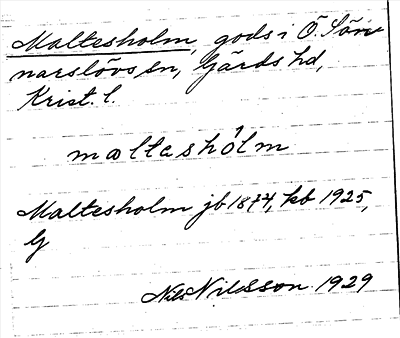 Maltesholm, gods i Ö. Sönn
narslövs sn, Gärds hd,
Krist. l.
maltashólm
Maltesholm jb 1874, kb 1925,
G
Nils Nilsson 1929